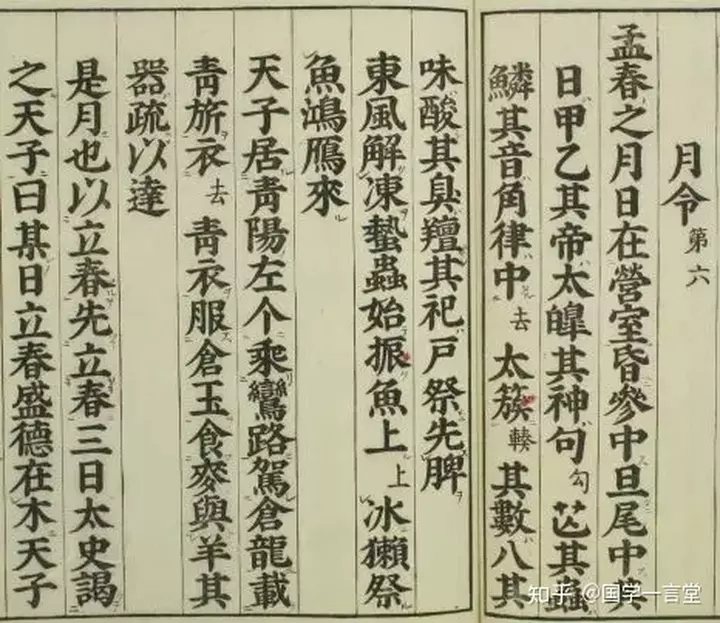 月令第六
孟春之月日在營室昏參中旦尾中其
日甲乙其帝太皥其神句勾芒其蟲
鱗其音角律中去太簇輳其數八其
味酸其臭羶其祀戸祭先脾
東風解凍蟄蟲始振魚上上冰獺祭
魚鴻鴈來
天子居靑陽左个乘鸞路駕倉龍載
靑旂衣去靑衣服倉玉食麥與羊其
器疏以達
是月也以立春先立春三日太史謁
之天子曰某日立春盛德在木天子
知乎 @国学一言堂